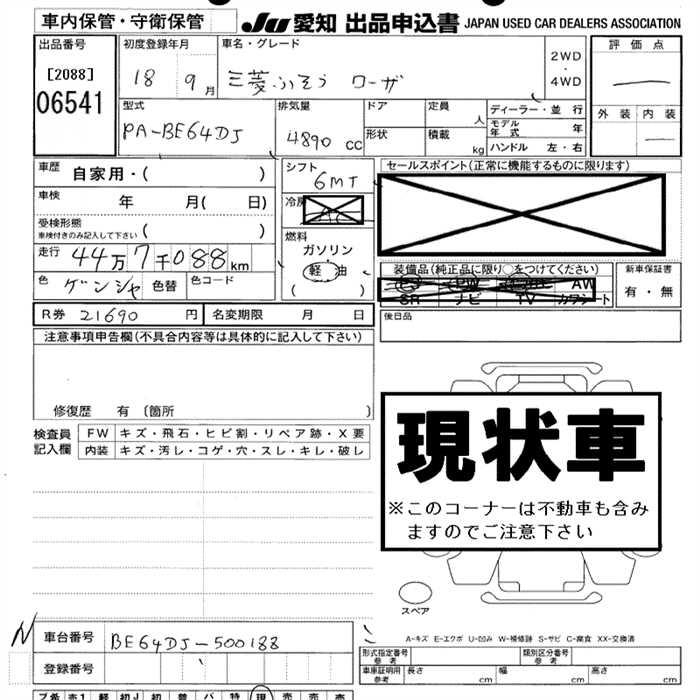 車内保管・守衛保管 JU 愛知 出品申込書 JAPAN USED CAR DEALERS ASSOCIATION
出品番号 初度登録年月 車名・グレード 評価点
[2088] 18 9月 三菱ふそう ローザ 2WD・4WD
06541 外装 内装
型式 排気量 ドア 定員 人 ディーラー・並行
PA-BE64DJ 4890 CC 形状 積載 kg モデル年式 年
ハンドル 左・右
車歴 自家用・( ) シフト 6MT セールスポイント(正常に機能するものに限ります)
車検 年 月( 日) 冷房
受検形態 ( )
車検付きのみ記入して下さい
燃料
走行 44万7千088km ガソリン
軽油
( )
装備品(純正品に限り○をつけてください) 新車保証書
色 ゲンシャ 色替 色コード PW AW 有・無
SR ナビ TV カワシート
R券 21690 円 名変期限 月 日 後日品
注意事項申告欄(不具合内容等は具体的に記入して下さい)
修復歴 有 〔箇所 〕
検査員記入欄 FW キズ・飛石・ヒビ割・リペア跡・X要
内装 キズ・汚レ・コゲ・穴・スレ・キレ・破レ
現状車
※このコーナーは不動車も含み
ますのでご注意下さい
スペア
N 車台番号 BE64DJ-500188
A-キズ E-エクボ U-凹み W-補修跡 S-サビ C-腐食 XX-交換済
登録番号 形式指定番号 参考 類別区分番号 参考
車車証明用 参考 長さ cm 幅 cm 高さ cm